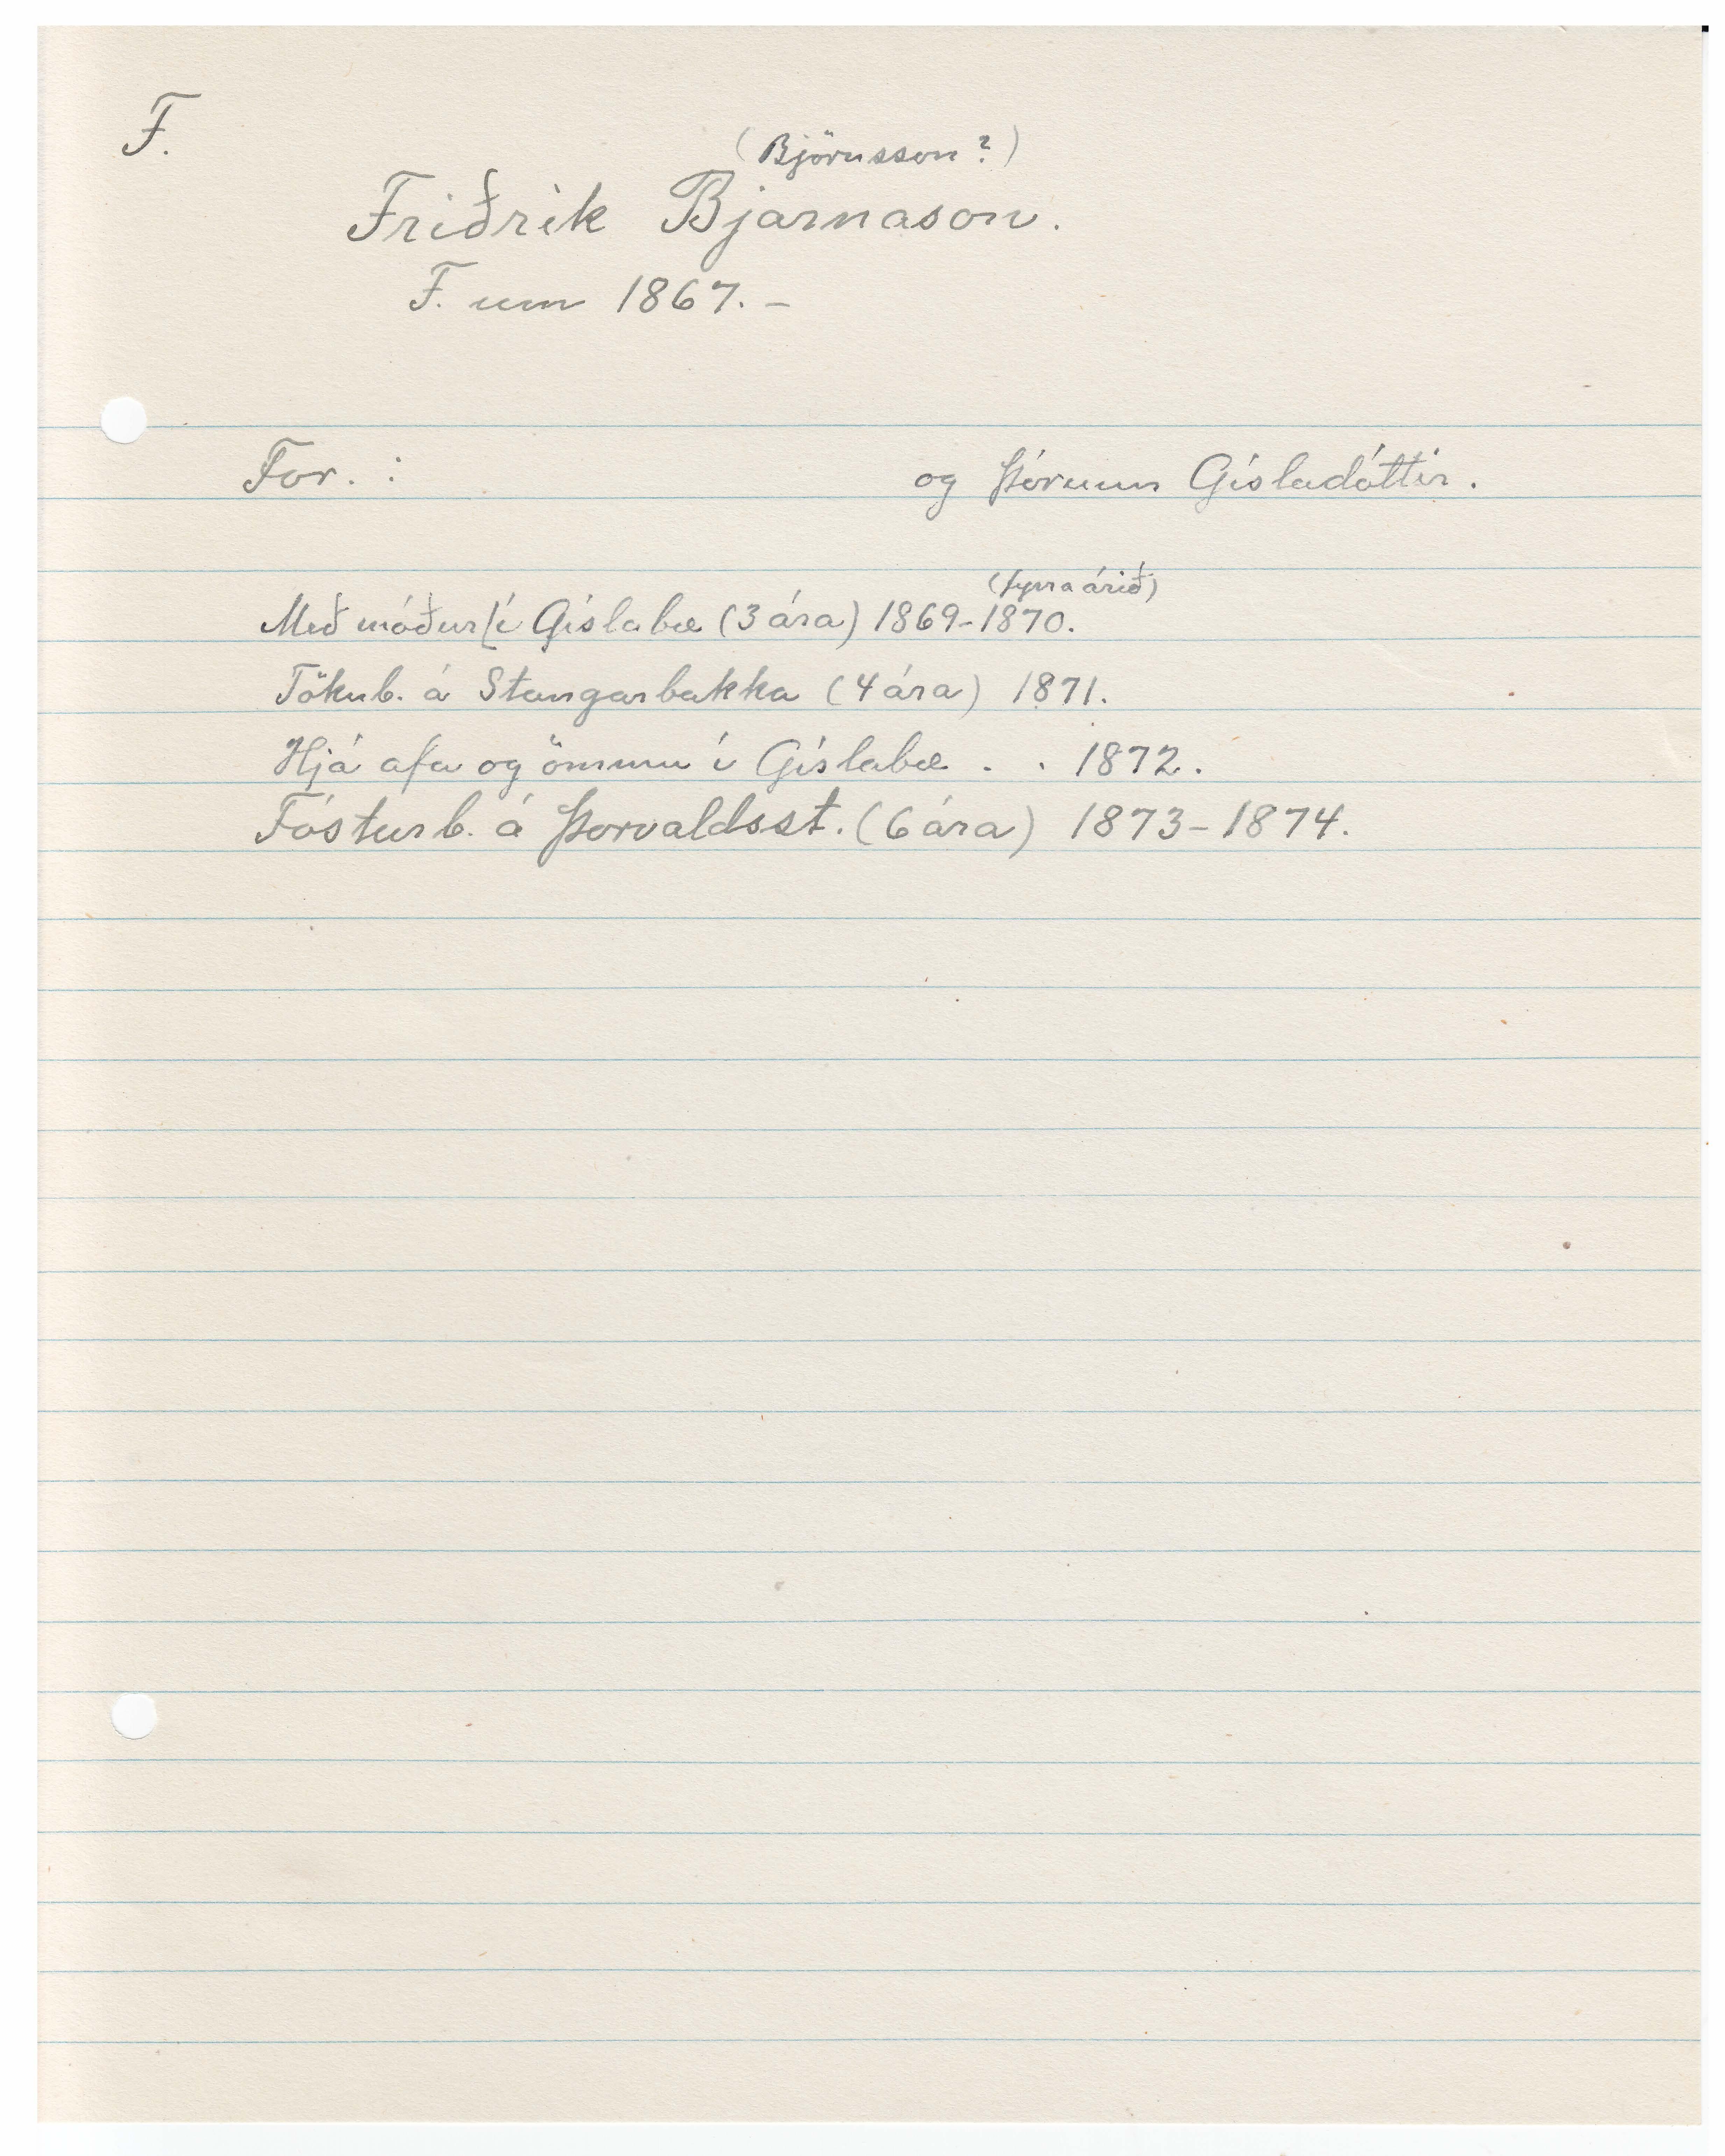 F.
(Björnsson?)
Friðrik Bjarnason.
F. um 1867. –
For. : og Þórunn Gísladóttir.
(fyrra árið)
Með móður í Gíslabæ (3 ára) 1869-1870.
Tökub. á Stangarbakka (4 ára) 1871.
Hjá afa og ömmu í Gíslabæ . . 1872.
Fósturb. á Þorvaldsst. (6 ára) 1873-1874.